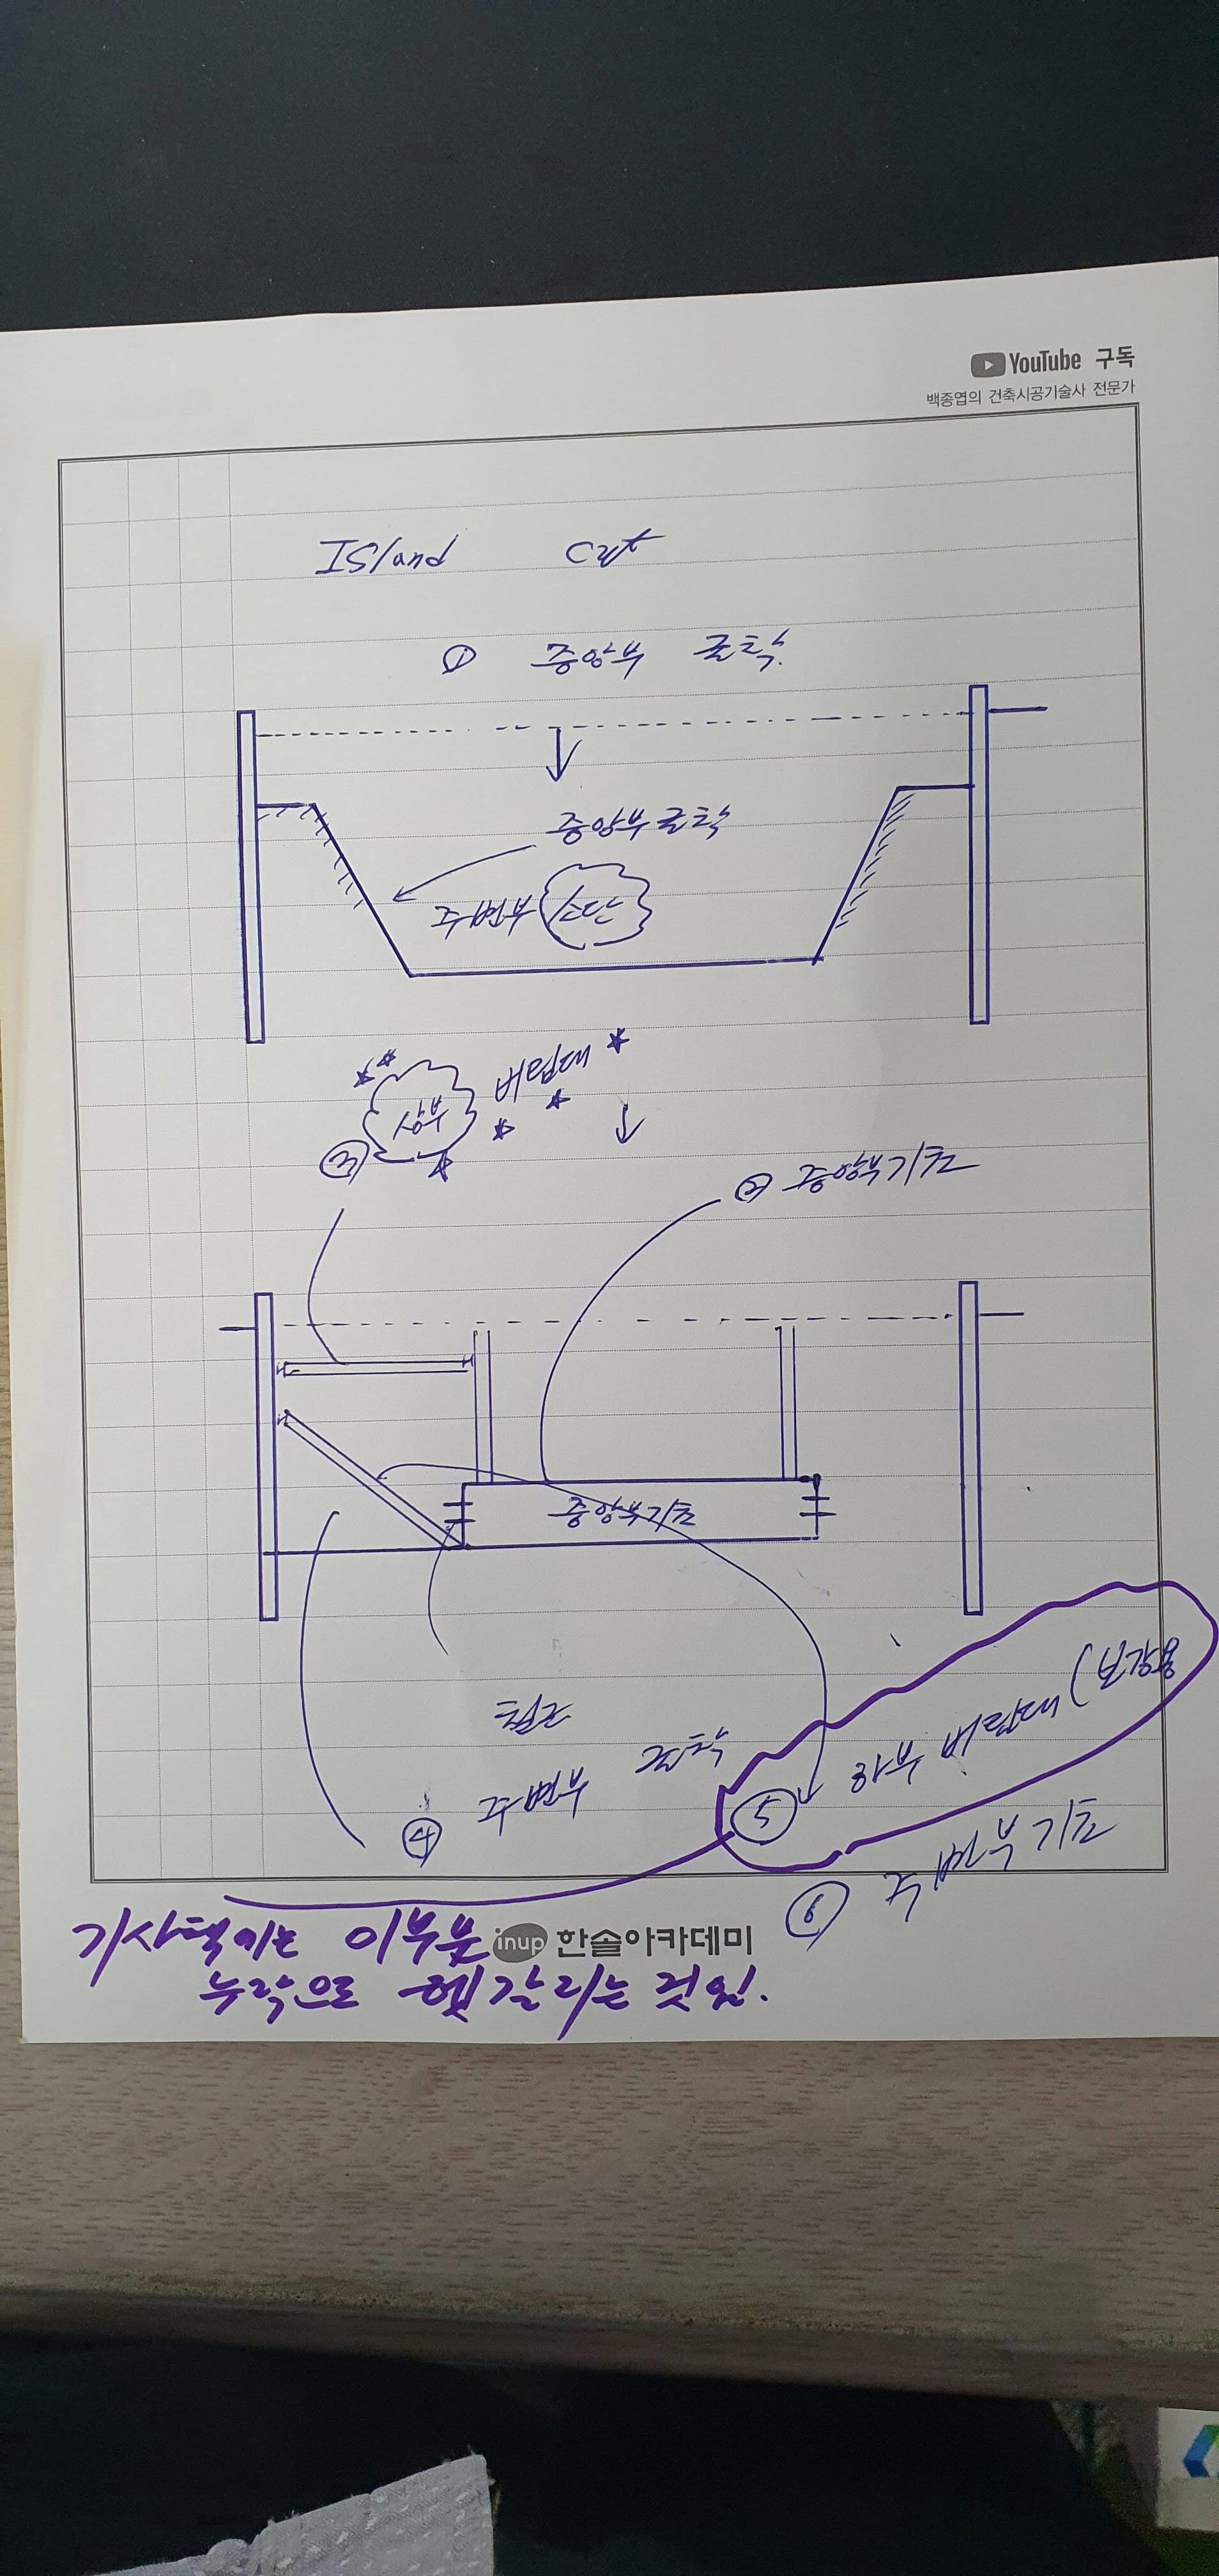 YouTube 구독
백종엽의 건축시공기술사 전문가
Island cut
① 중앙부 굴착.
중앙부굴착
주변부 소단
③ 상부 버팀대
② 중앙부기초
중앙부기초
철근
④ 주변부 굴착
⑤ 하부 버팀대 (보강용
⑥ 주변부 기초
inup 한솔아카데미
기사책기는 이부분
누락으로 헷갈리는 것임.